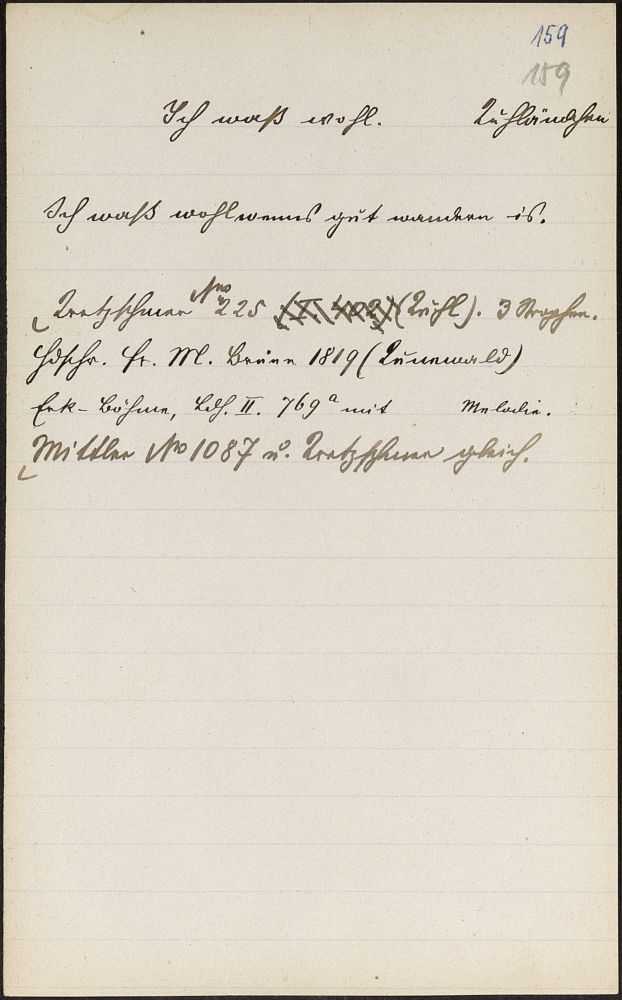 159
159
Ich waß wohl. Kuhländchen
Ich waß wohl wenns gut wandern is.
Kretzschmer No 225 (II 402) (Kuhl). 3 Strophen.
Hdschr. Fr. M. Brünn 1819 (Kunewald)
Erk-Böhme, Ldh. II. 769a mit Melodie.
Mittler No 1087 u. Kretzschmer gleich.